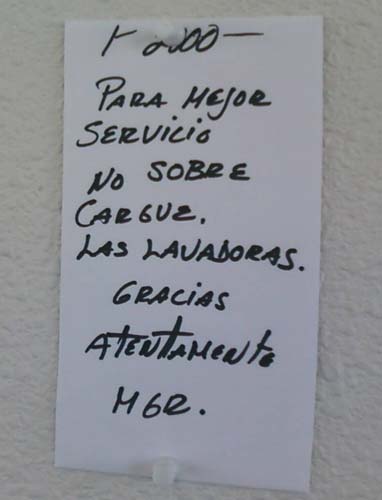 2000—
PARA MEJOR
SERVICIO
NO SOBRE
CARGUE.
LAS LAVADORAS.
GRACIAS
ATENTAMENTE
MGR.